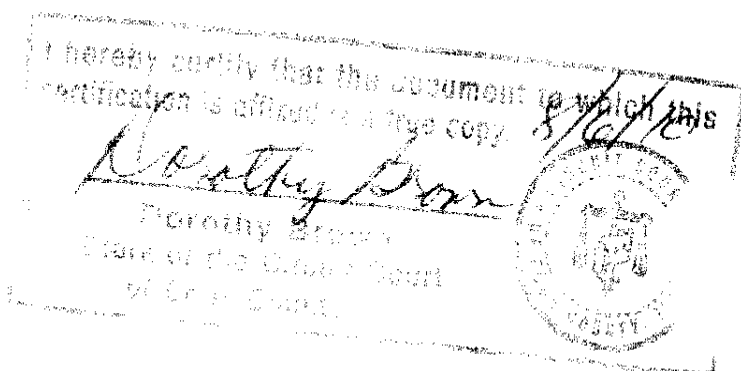 I hereby certify that the document to which this
certification is affixed is a true copy. 8/6/12
Dorothy Brown
Dorothy Brown
Clerk of the Circuit Court
of Cook County
CIRCUIT COUR
COUNTY